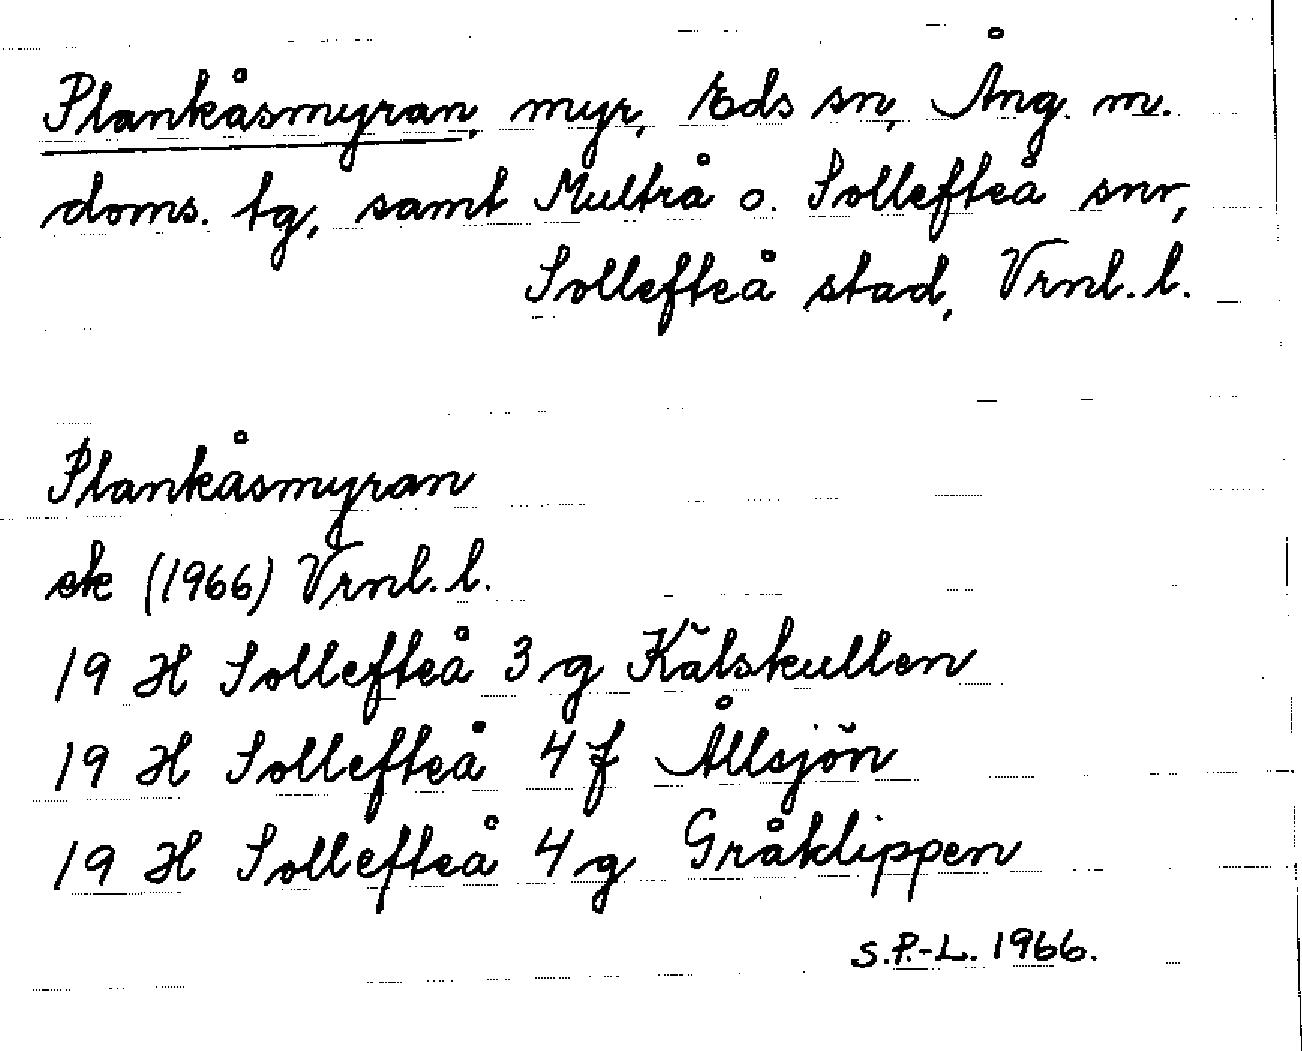 Plankåsmyran, myr, Eds sn, Ång. m.
doms. tg, samt Multrå o. Sollefteå snr,
Sollefteå stad, Vrnl. l.
Plankåsmyran
ek (1966) Vrnl. l.
19 H Sollefteå 3 g Kälskullen
19 H Sollefteå 4 f Ållsjön
19 H Sollefteå 4 g Gråklippen
S.P.-L. 1966.